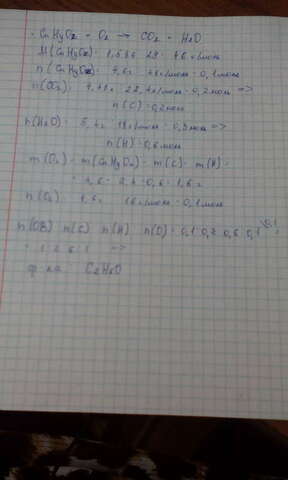 CnHyOz + O2 → CO2 + H2O
M(CnHyOz) = 1,586 · 29 = 46 г/моль
n(CnHyOz) = 4,6г : 46 г/моль = 0,1 моль
n(CO2) = 4,48л : 22,4л/моль = 0,2 моль =>
n(C) = 0,2 моль
n(H2O) = 5,4г : 18г/моль = 0,3 моль =>
n(H) = 0,6 моль
m(O2) = m(CnHyOz) - m(C) - m(H) =
= 4,6 - 2,4 - 0,6 = 1,6г
n(O2) = 1,6г : 16г/моль = 0,1 моль
n(C) : n(H) : n(O) = 0,1 : 0,2 : 0,6 : 0,1
= 1 : 2 : 6 : 1 =>
ф-ла: C2H6O